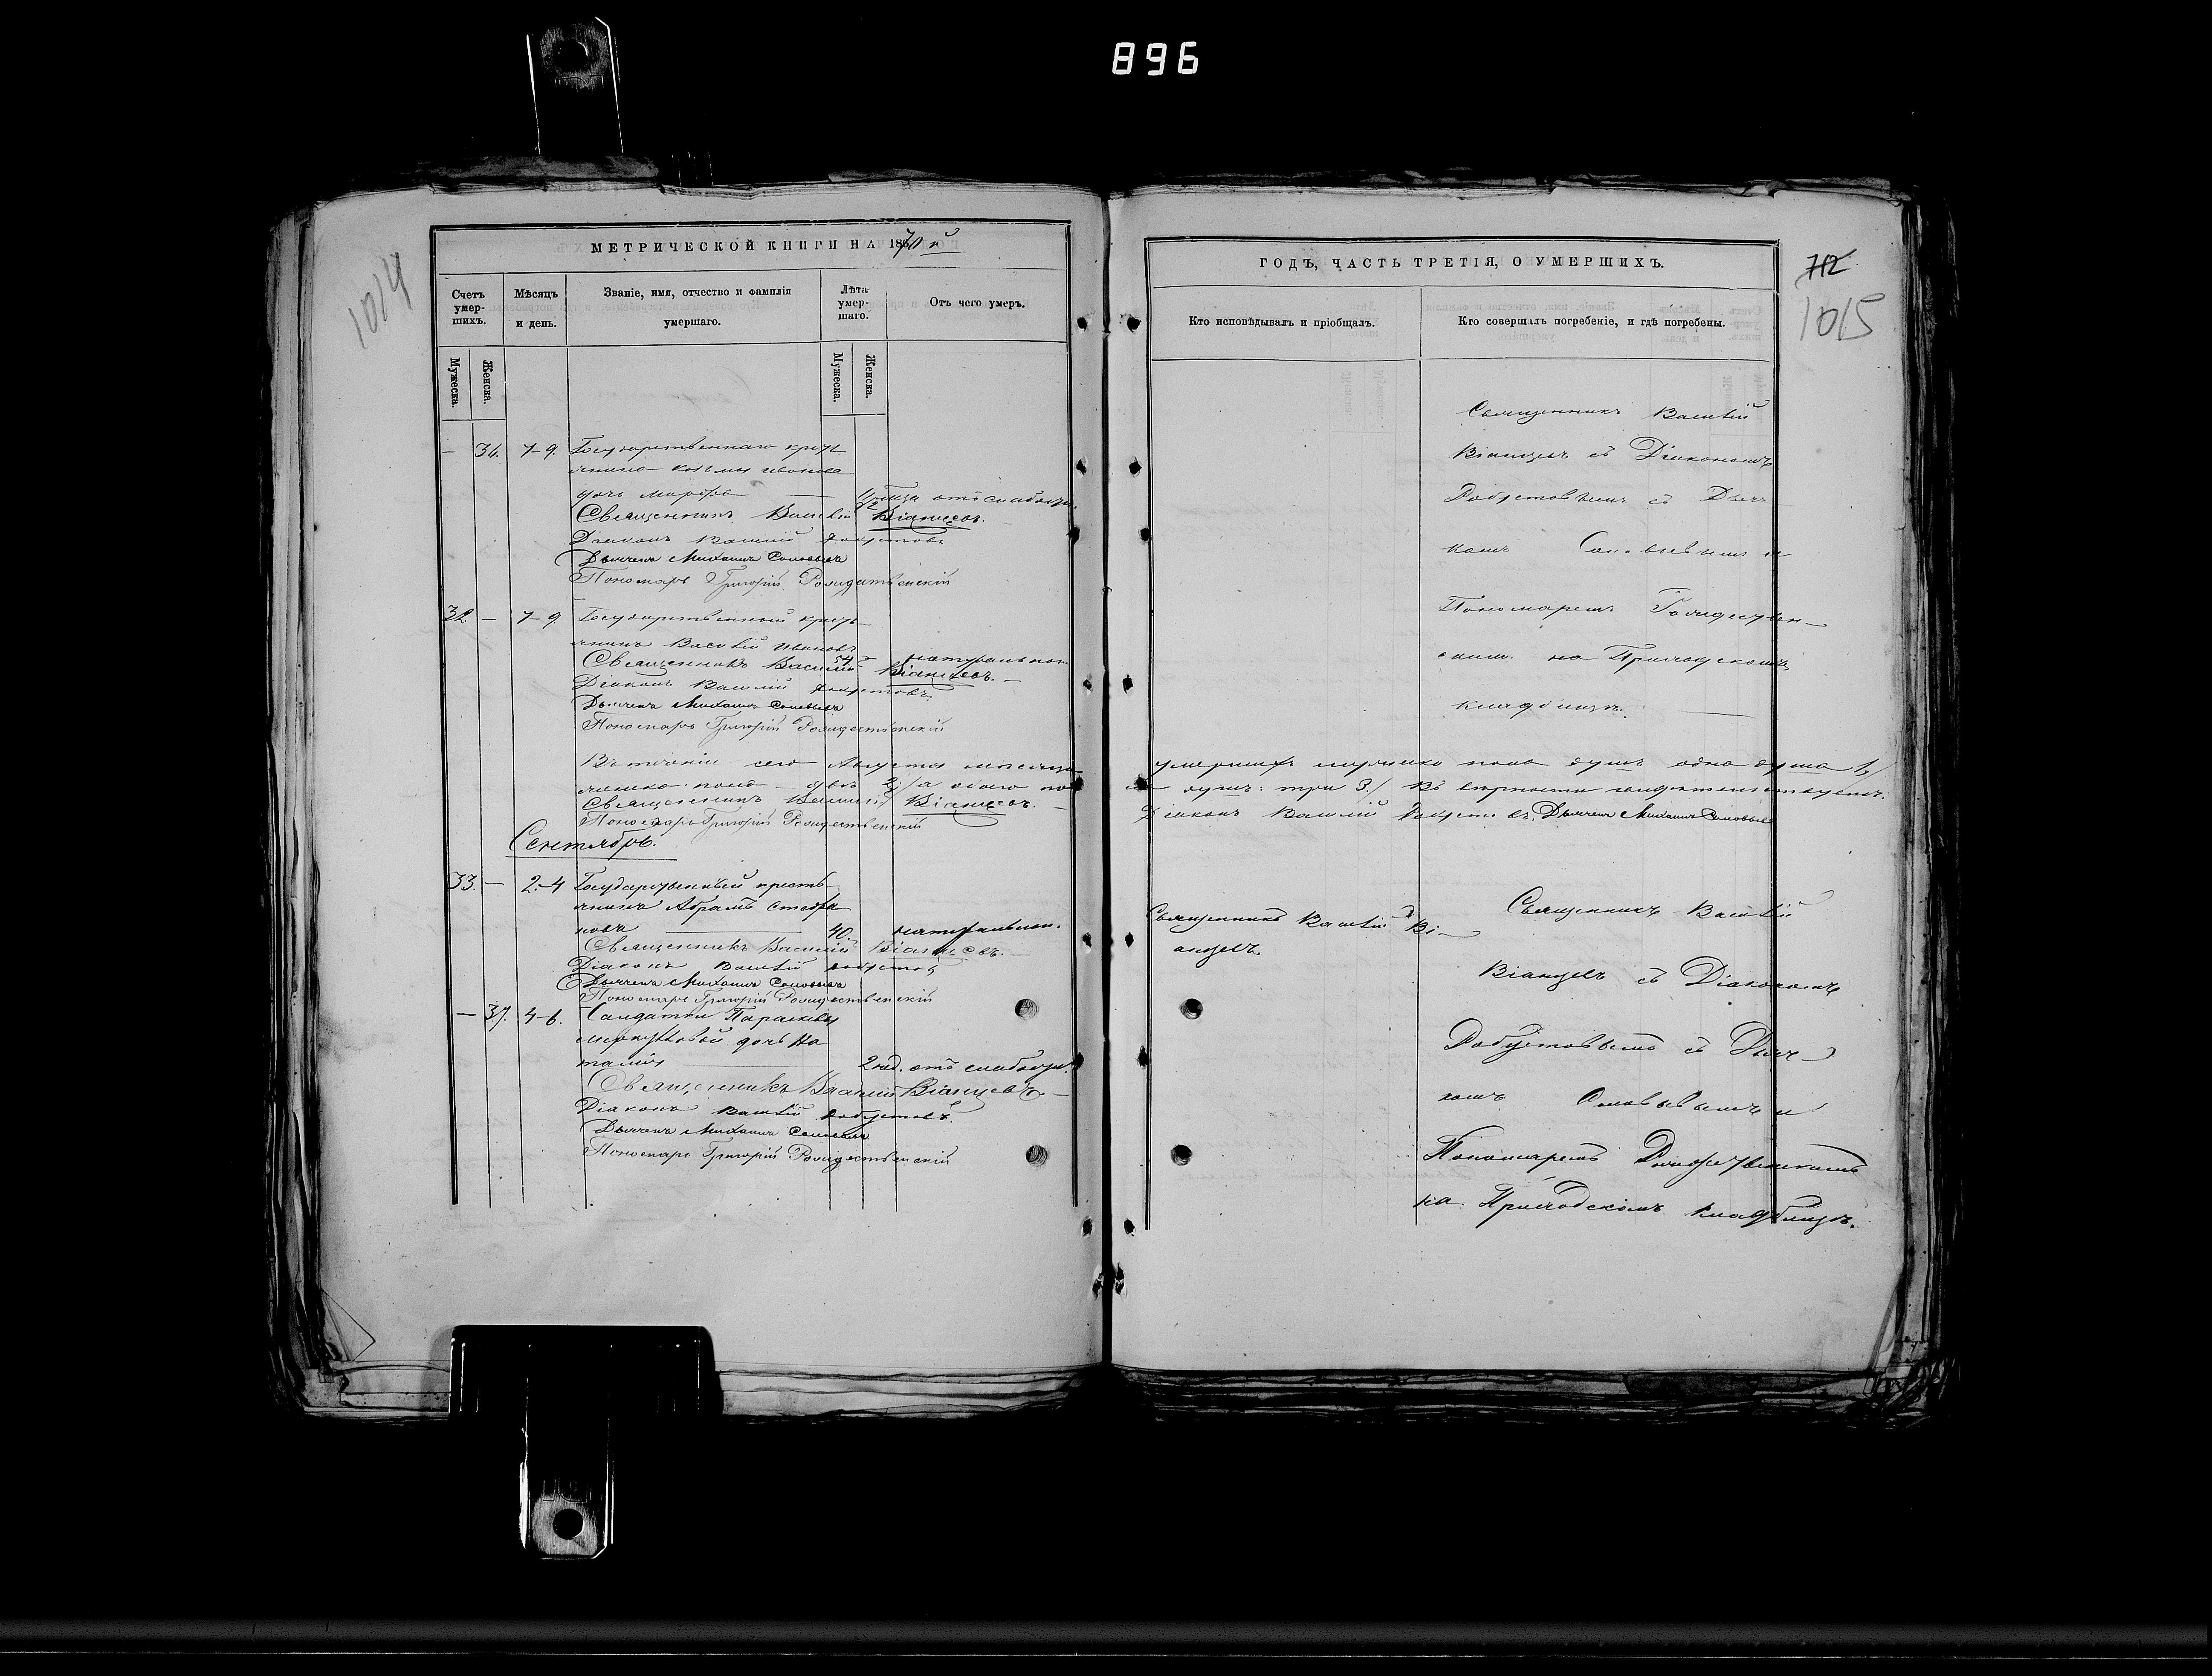 896
1014
МЕТРИЧЕСКОЙ КНИГИ НА 1870й
Счетъ умер-шихъ.
Мѣсяцъ и день.
Званіе, имя, отчество и фамилія умершаго.
Лѣта умер-шаго.
Отъ чего умеръ.
Мужеска.
Женска.
Мужеска.
Женска.
— 36. 7-9. Государственнаго кресть
янина Козьмы Иванова
дочь Марѳа — 1/2 года отъ слабости.
Священникъ Василій Віанцевъ.
Діаконъ Василій Добустовъ
Дьячекъ Михаилъ Соловьевъ
Пономарь Григорій Рождественскій
32 — 7-9. Государственный кресть
янинъ Василій Ивановъ 54 натуральной.
Священникъ Василій Віанцевъ.
Діаконъ Василій Добустовъ.
Дьячекъ Михаилъ Соловьевъ
Пономарь Григорій Рождественскій
Въ теченіи сего Августа мѣсяца
женска пола двѣ 2/ а обоего по
Священникъ Василій Віанцевъ.
Пономарь Григорій Рождественскій
Сентябрь.
33. — 2-4 Государственный кресть
янинъ Абрамъ Стефа
новъ 40. натуральной.
Священникъ Василій Віанцевъ.
Діаконъ Василій Добустов
Дьячекъ Михаилъ Соловьевъ
Пономарь Григорій Рождественскій
— 37. 4-6. Солдатки Параскевы
Меркуловой дочь На
талія 2 год. отъ слабости.
Священникъ Василій Віанцевъ.
Діаконъ Василій Добустовъ.
Дьячекъ Михаилъ Соловьевъ
Пономарь Григорій Рождественскій
ГОДЪ, ЧАСТЬ ТРЕТІЯ, О УМЕРШИХЪ.
712
1015
Кто исповѣдывалъ и пріобщалъ.
Кто совершалъ погребеніе, и гдѣ погребены.
Священникъ Василій
Віанцевъ съ Діакономъ
Добустовымъ съ Дьяч
комъ Соловьевымъ и
Пономаремъ Рождествен
скимъ на Приходскомъ
кладбищѣ.
умершихъ мужеска пола душъ одна душа 1/
душъ: три 3./ Въ вѣрности свидѣтельствуемъ:
Діаконъ Василій Добустовъ. Дьячекъ Михаилъ Соловьевъ
Священникъ Василій Ві
анцевъ
Священникъ Василій
Віанцевъ съ Діакономъ
Добустовымъ съ Дьяч
комъ Соловьевымъ и
Пономаремъ Рождественскимъ
на Приходскомъ кладбищѣ.